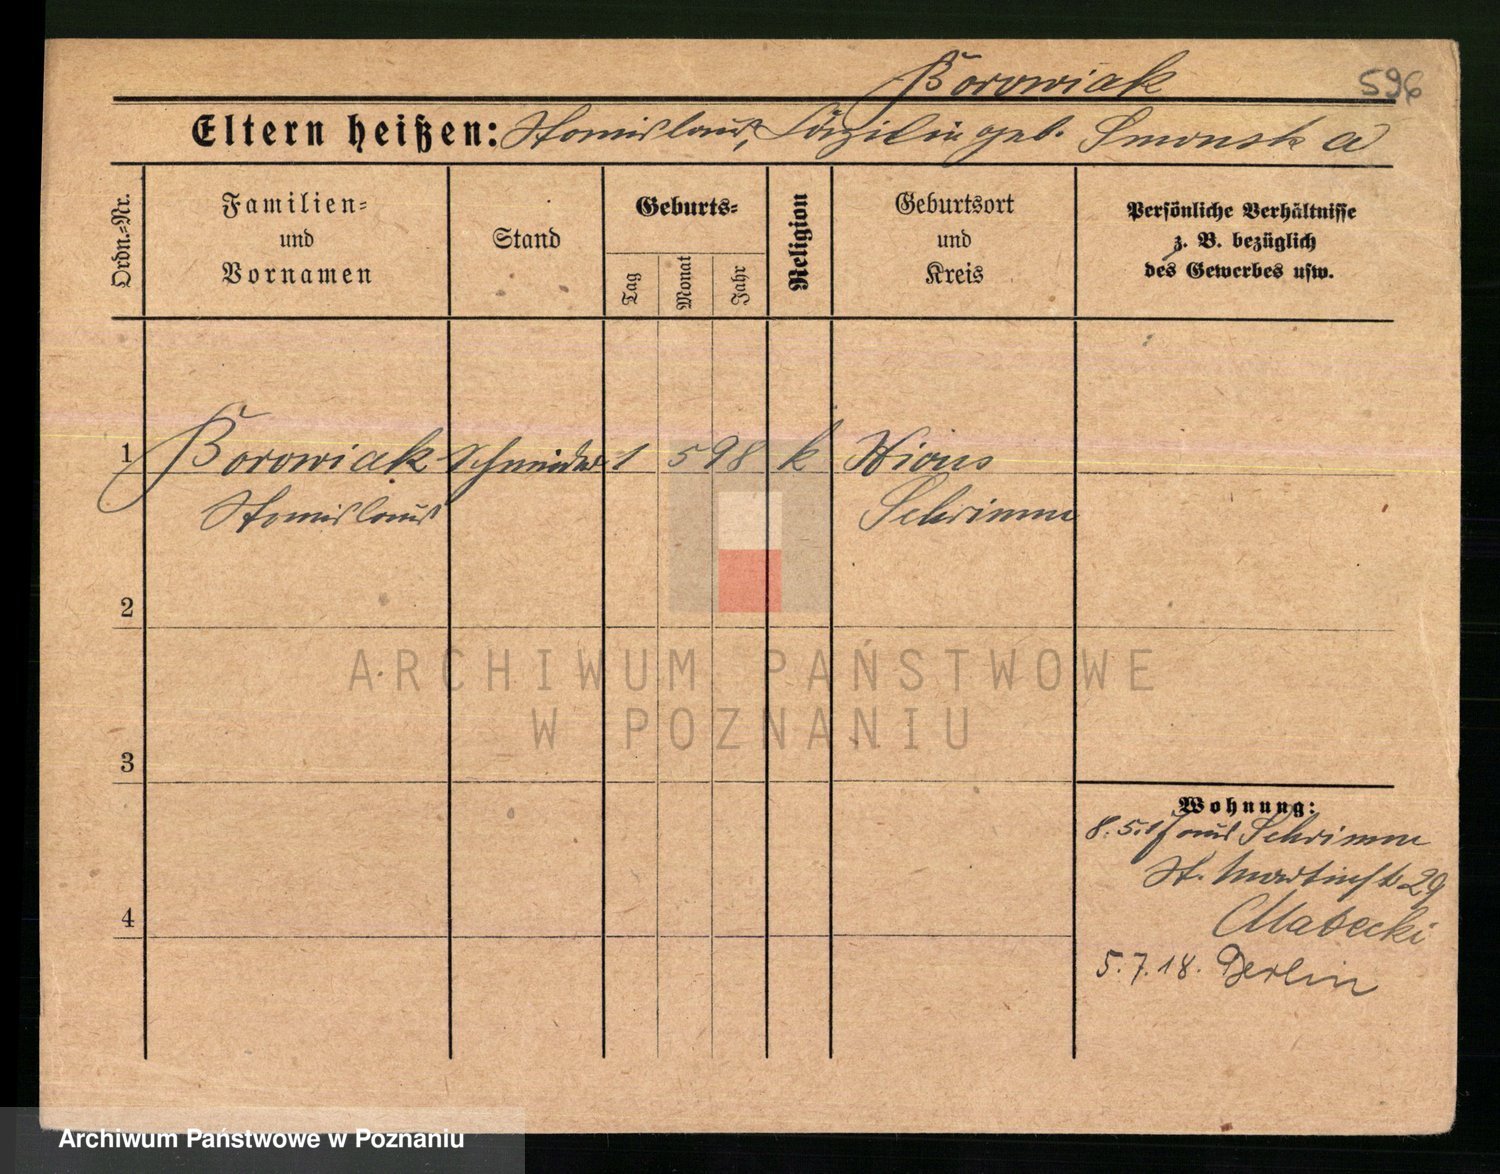 Borowiak
596
Eltern heißen: Stanislaus, Cäzilia geb. Smonsk a
Ordn.-Nr.
Familien- und Vornamen
Stand
Geburts-
Tag
Monat
Jahr
Religion
Geburtsort und Kreis
Persönliche Verhältnisse
z. B. bezüglich
des Gewerbes usw.
1 Borowiak Schneider 1 5 98 k Xions
Stanislaus Schrimm
2
3
4
ARCHIWUM PAŃSTWOWE
W POZNANIU
Wohnung:
8.5.17 aus Schrimm
St. Martinstr 29
Matecki
5.7.18. Berlin
Archiwum Państwowe w Poznaniu